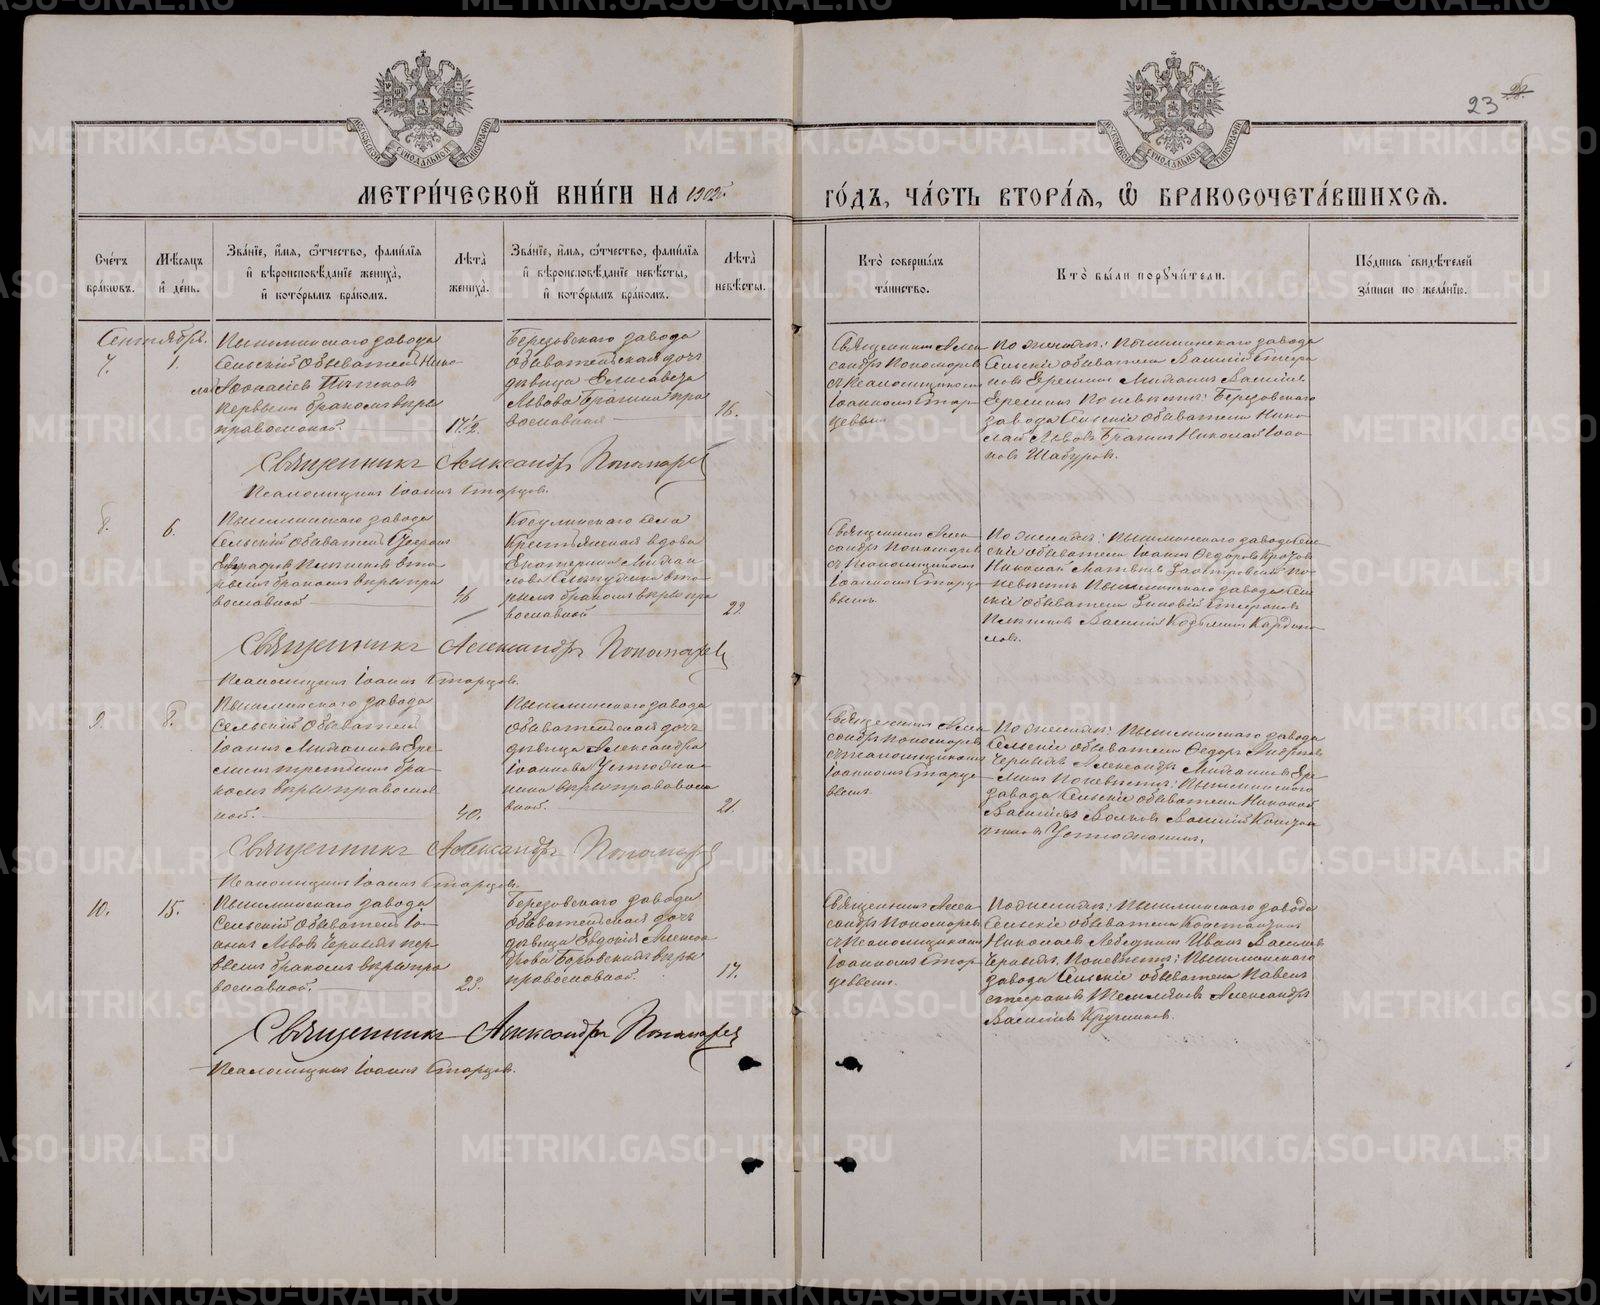 23
МОСКОВСКОЙ СѴНОДАЛЬНОЙ ТИПОГРАФИИ
МОСКОВСКОЙ СѴНОДАЛЬНОЙ ТИПОГРАФИИ
МЕТРИ́ЧЕСКОЙ КНИ́ГИ НА 1902
ГО́ДЪ, ЧА́СТЬ ВТОРА́Я, Ѡ҆ БРАКОСОЧЕТА́ВШИХСЯ.
Сче́тъ
бра́кѡвъ.
Мѣ́сяцъ
и҆ де́нь.
Зва́нїе, и҆́мя, ѻ҆́тчество, фамилі́я
и҆ вѣроисповѣ́данїе жениха̀,
и҆ кото́рымъ бра́комъ.
Лѣ́та
жениха̀.
Зва́нїе, и҆́мя, ѻ҆́тчество, фамилі́я
и҆ вѣроисповѣ́данїе невѣ́сты,
и҆ кото́рымъ бра́комъ.
Лѣ́та
невѣ́сты.
Кто̀ соверша́лъ
та́инство.
Кто̀ бы́ли порꙋчи́тели.
По́дпись свидѣ́телей
за́писи по жела́нїю.
Сентябрь.
7.
1.
Пышминскаго завода
Сельскій Обыватель Нико
лай
первымъ бракомъ вѣры
православной.
17½.
Березовскаго завода
Обывательская дочь
дѣвица Елисавета
Львова Брагина пра
вославная
16.
Священникъ Алек
сандръ Пономарев
съ Псаломщикомъ
Іоанномъ Стар
цевымъ
По женихѣ: Пышминскаго завода
Сельскіе обыватели Василій Стефа
новъ Еремины
Еремины По невѣстѣ: Березовскаго
завода Сельскіе обыватели Нико
лай Львовъ Брагинъ Николай Іоан
новъ Шабуровъ.
Священникъ Александръ Пономарев
Псаломщикъ Іоаннъ Старцовъ.
8.
6.
Пышминскаго завода
Сельскій Обыватель
вто
рымъ бракомъ вѣры пра
вославной
46
Косулинскаго села
Крестьянская вдова
Екатерина Михаи
лова вто
рымъ бракомъ вѣры пра
вославной
29.
Священникъ Алек
сандръ Пономарев
съ Псаломщикомъ
Іоанномъ Старце
вымъ.
По женихѣ: Пышминскаго завода Сель
скіе обыватели Іоаннъ Ѳедоровъ
Николай Матвѣевъ по
невѣстѣ Пышминскаго завода Сель
скіе обыватели Зиновій Стефановъ
Василій Козьминъ
Священникъ Александръ Пономарев
Псаломщикъ Іоаннъ Старцовъ.
9.
8.
Пышминскаго завода
Сельскій Обыватель
Іоаннъ Михаиловъ Ере
минъ третьимъ бра
комъ вѣры православ
ной.
40.
Пышминскаго завода
Обывательская дочь
дѣвица Александра
Іоаннова Устюжа
нина вѣры православ
ной.
21.
Священникъ Алек
сандръ Пономарев
съ псаломщикомъ
Іоанномъ Старце
вымъ.
По женихѣ: Пышминскаго завода
Сельскіе обыватели Ѳедоръ Андреевъ
Александръ Михаиловъ Ере
минъ По невѣстѣ: Пышминскаго
завода Сельскіе обыватели Николай
Васильевъ Волковъ Василій Констан
тиновъ Устюжанинъ.
Священникъ Александръ Пономарев
Псаломщикъ Іоаннъ Старцовъ.
10.
15.
Пышминскаго завода
Сельскій Обыватель Іо
аннъ Львовъ пер
вымъ бракомъ вѣры пра
вославной.
23.
Березовскаго завода
Обывательская дочь
дѣвица Евдокія Алексан
дрова Боровскихъ вѣры
православной.
17.
Священникъ Алек
сандръ Пономарев
съ Псаломщикомъ
Іоанномъ Стар
цевымъ.
По женихѣ: Пышминскаго завода
Сельскіе обыватели Константинъ
Николаевъ Лебедкинъ Иванъ Васильевъ
По невѣстѣ: Пышминскаго
завода Сельскіе обыватели Павелъ
Стефановъ Александръ
Васильевъ Кручининъ.
Священникъ Александръ Пономарев
Псаломщикъ Іоаннъ Старцовъ.
METRIKI.GASO-URAL.RU